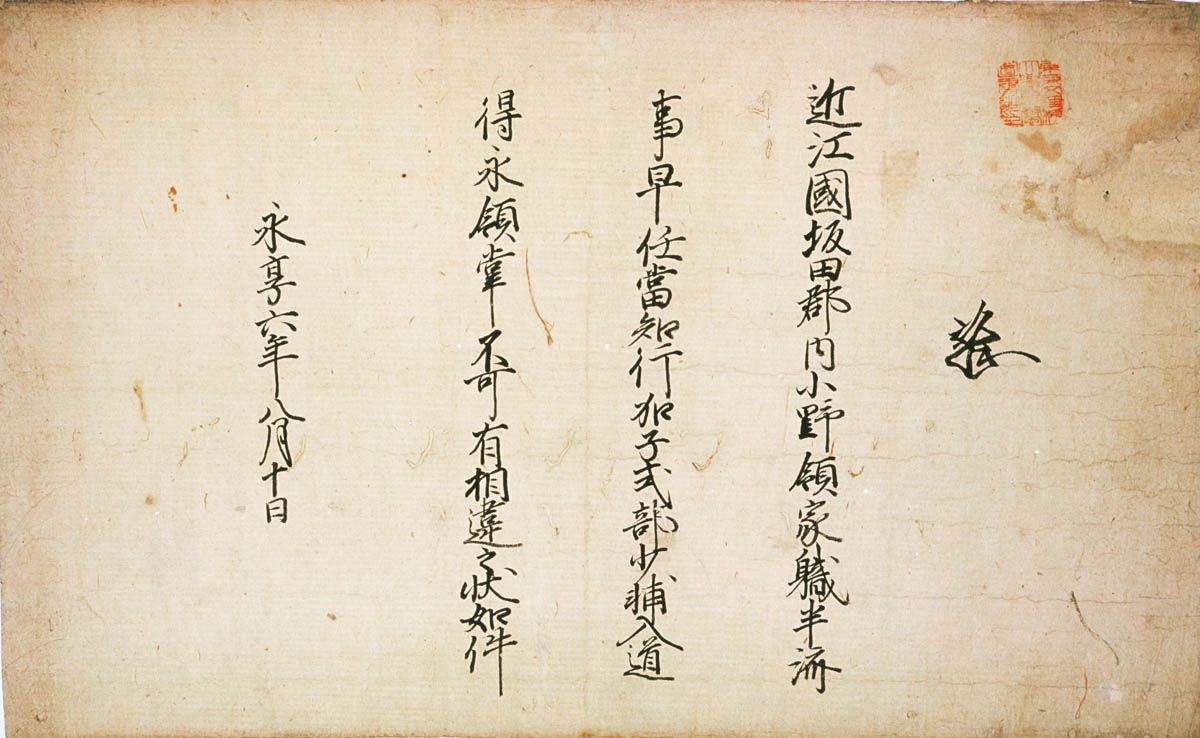 近江國坂田郡内小野領家軄半済
事早任當知行加子式部少輔入道
得永領掌不可有相違之状如件
永享六年八月十日